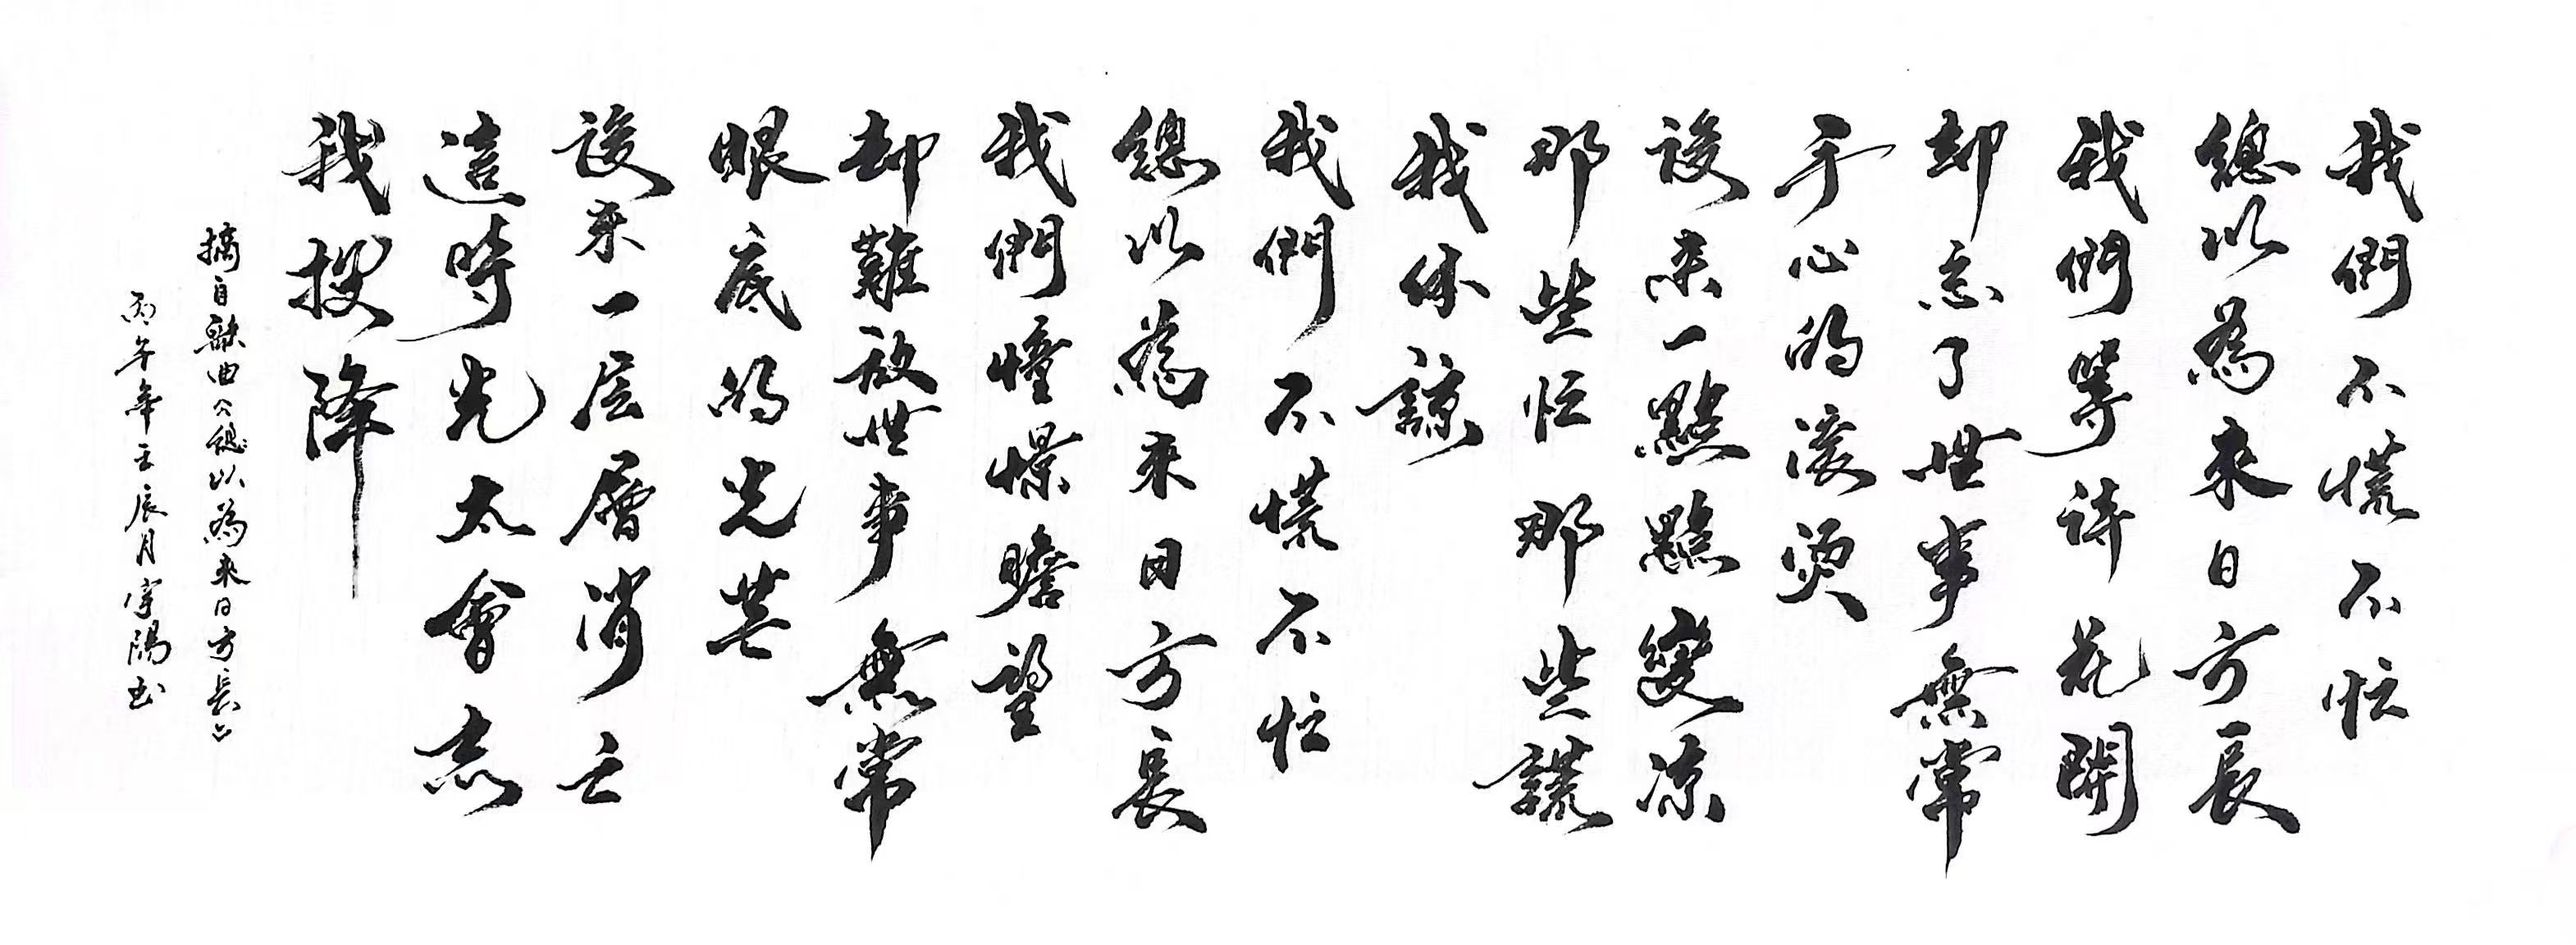 我們不慌不忙
總以為來日方長
我們等待花開
却忘了世事無常
手心的滚燙
後来一點點變凉
那些忙那些謊
我体諒
我們不慌不忙
總以為来日方長
我們憧憬瞻望
却難敌世事無常
眼底的光芒
後来一层層消亡
這時光太會忘
我投降
摘自歌曲《總以為来日方長》
丙午年壬辰月宇陽书